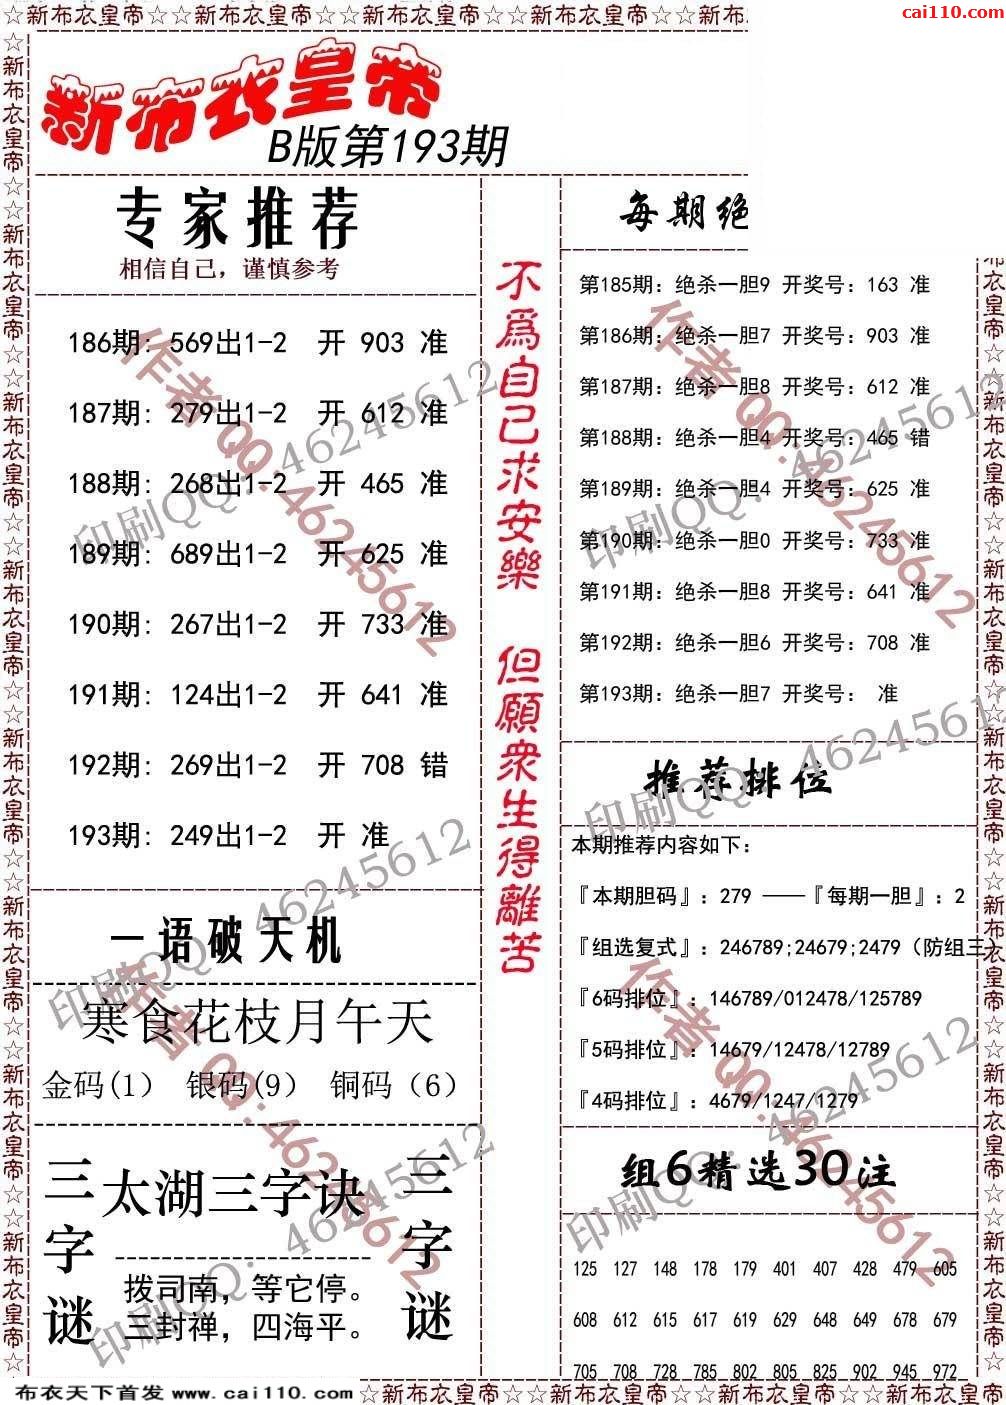 ☆新布衣皇帝☆☆新布衣皇帝☆☆新布衣皇帝☆☆新布衣皇帝☆☆新布
cai110.com
新布衣皇帝
B版第193期
专家推荐
相信自己，谨慎参考
186期: 569出1-2 开 903 准
187期: 279出1-2 开 612 准
188期: 268出1-2 开 465 准
189期: 689出1-2 开 625 准
190期: 267出1-2 开 733 准
191期: 124出1-2 开 641 准
192期: 269出1-2 开 708 错
193期: 249出1-2 开 准
一语破天机
寒食花枝月午天
金码(1) 银码(9) 铜码（6）
三字谜
太湖三字诀
拨司南，等它停。
三封禅，四海平。
三字谜
不爲自己求安樂 但願衆生得離苦
每期绝
第185期：绝杀一胆9 开奖号：163 准
第186期：绝杀一胆7 开奖号：903 准
第187期：绝杀一胆8 开奖号：612 准
第188期：绝杀一胆4 开奖号：465 错
第189期：绝杀一胆4 开奖号：625 准
第190期：绝杀一胆0 开奖号：733 准
第191期：绝杀一胆8 开奖号：641 准
第192期：绝杀一胆6 开奖号：708 准
第193期：绝杀一胆7 开奖号： 准
推荐排位
本期推荐内容如下：
『本期胆码』：279 ——『每期一胆』：2
『组选复式』：246789;24679;2479（防组三）
『6码排位』：146789/012478/125789
『5码排位』：14679/12478/12789
『4码排位』：4679/1247/1279
组6精选30注
125 127 148 178 179 401 407 428 479 605
608 612 615 617 619 629 648 649 678 679
705 708 728 785 802 805 825 902 945 972
作者QQ:46245612
印刷QQ：46245612
作者QQ:46245612
印刷QQ：46245612
印刷QQ：46245612
印刷QQ：46245612
作者QQ:46245612
印刷QQ：46245612
作者QQ:46245612
印刷QQ：46245612
☆新布衣皇帝☆☆新布衣皇帝☆☆新布衣皇帝☆☆新布衣皇帝☆☆新布衣皇帝☆☆新布衣皇帝☆☆新布衣皇帝☆☆新布衣皇帝☆
布衣皇帝☆☆新布衣皇帝☆☆新布衣皇帝☆☆新布衣皇帝☆☆新布衣皇帝☆☆新布衣皇帝☆☆新布衣皇帝☆
布衣天下首发 www.cai110.com
☆新布衣皇帝☆☆新布衣皇帝☆☆新布衣皇帝☆☆新布衣皇帝☆